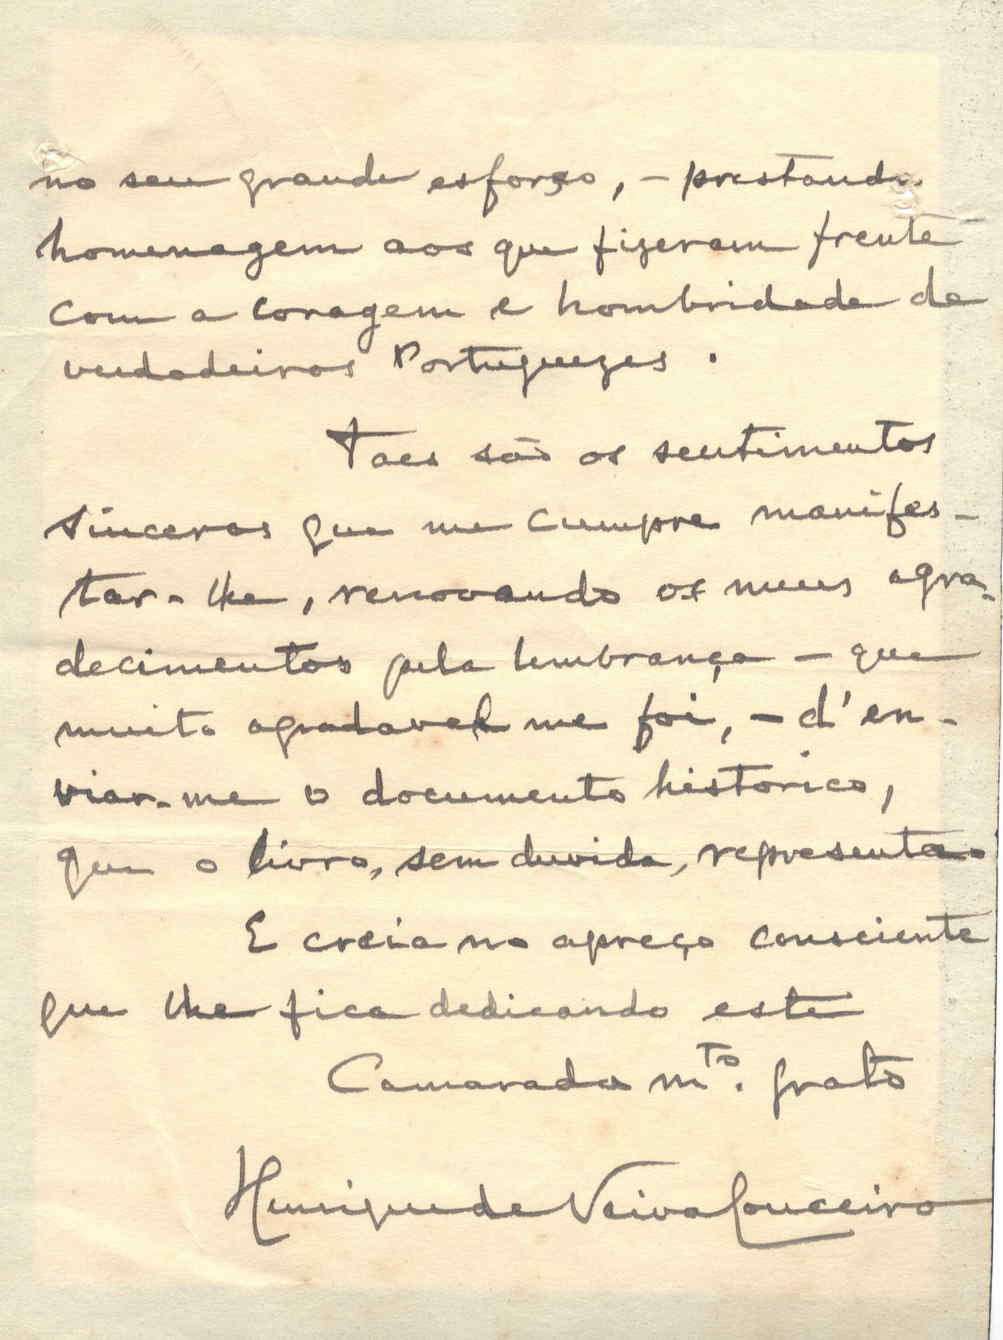 no seu grande esforço, - prestando
homenagem aos que fizeram frente
com a coragem e hombridade de
verdadeiros Portuguezes.
Taes são os sentimentos
sinceros que me cumpre manifes-
tar-lhe, renovando os meus agra-
decimentos pela lembrança - que
muito agradavel me foi, - d'en-
viar-me o documento historico,
que o livro, sem duvida, representa.
E creia no apreço consciente
que lhe fica dedicando este
Camarada mto. grato
Henrique de Paiva Couceiro